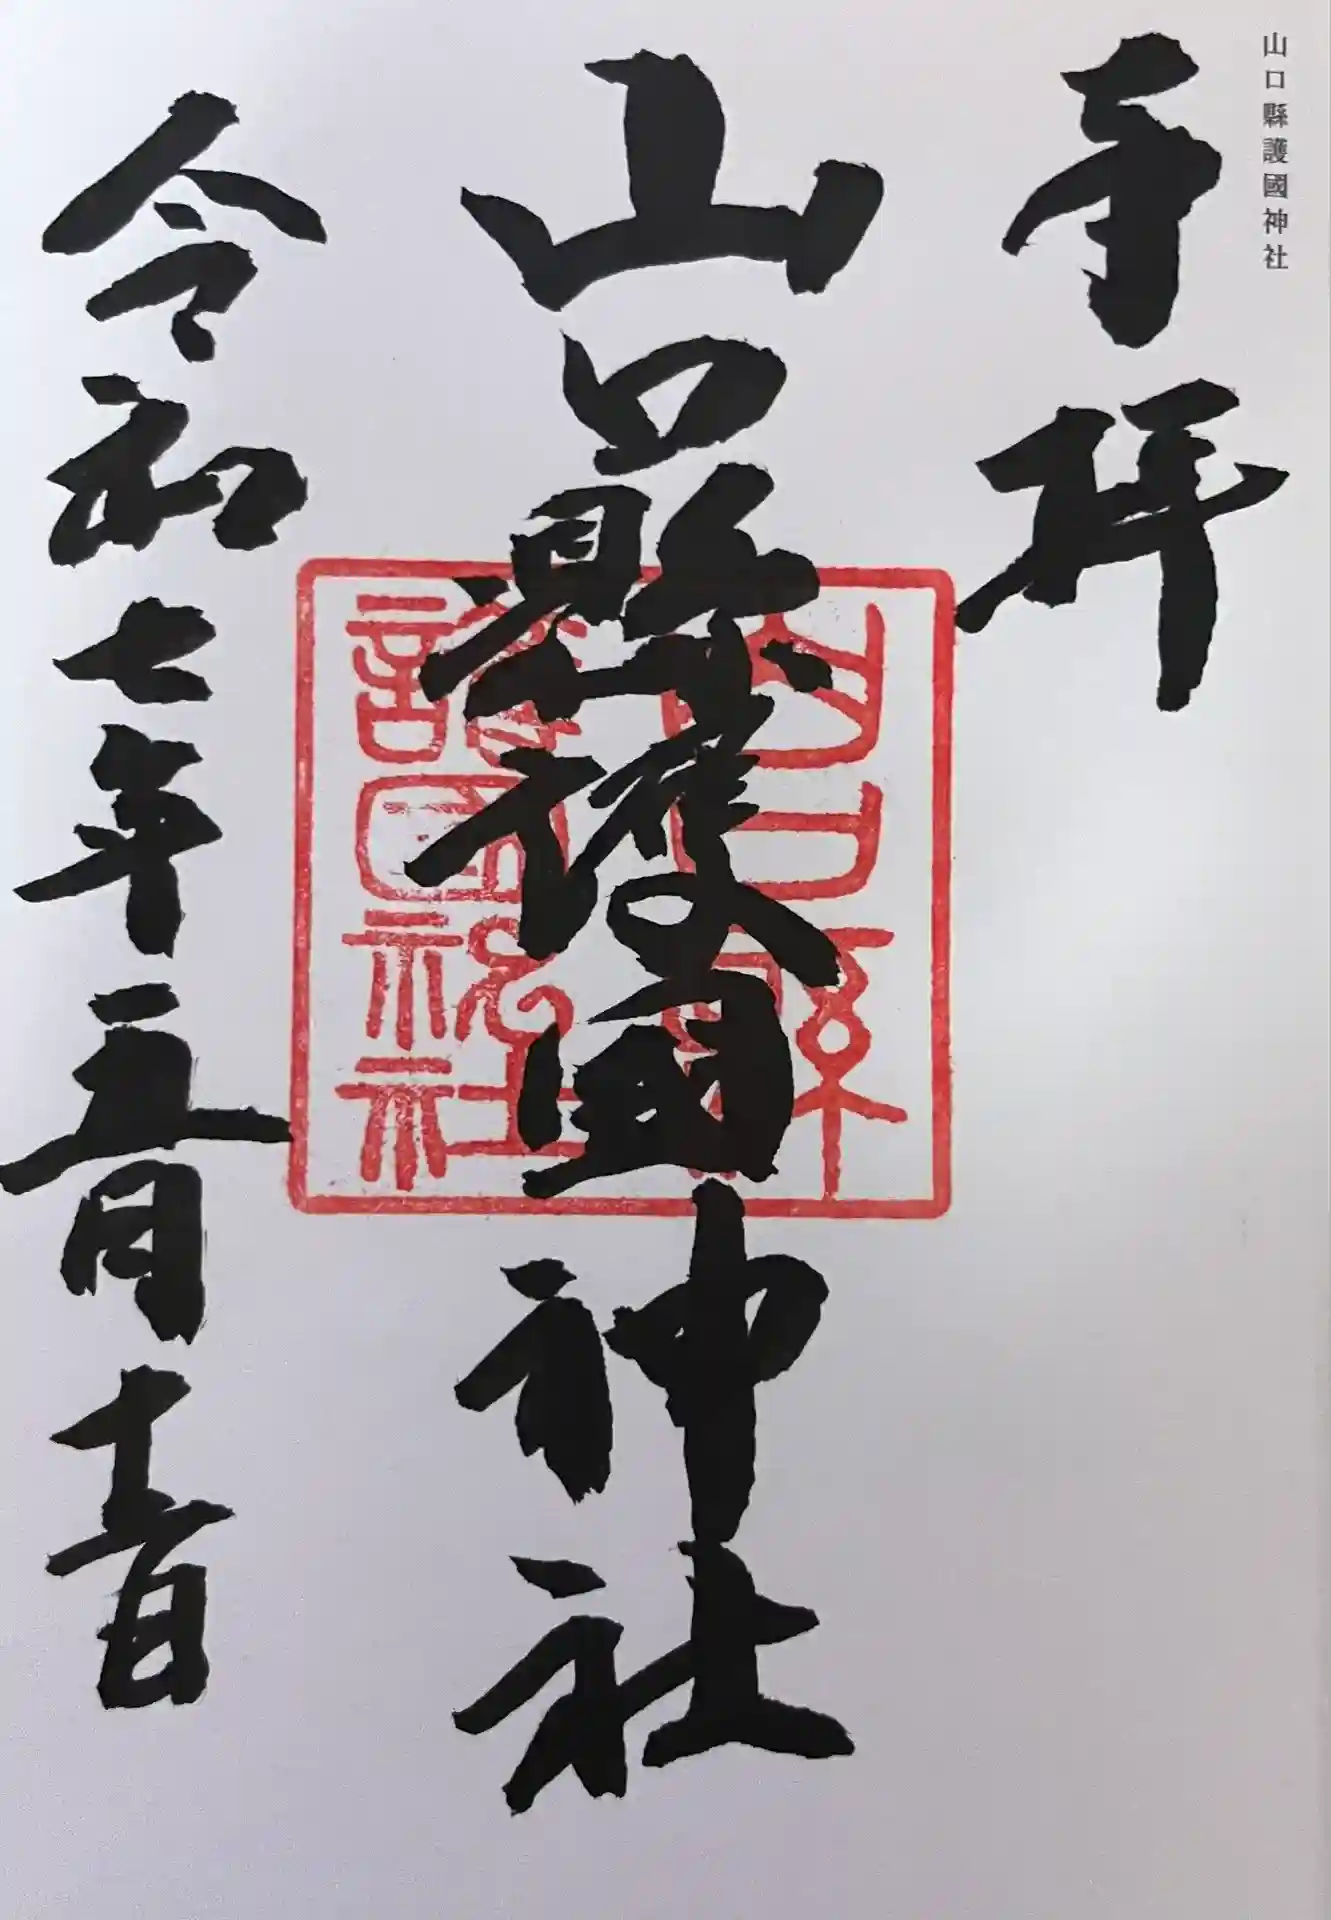 山口縣護國神社
奉拝
山口縣護國神社
山口縣
護國神社
令和七年五月十二日